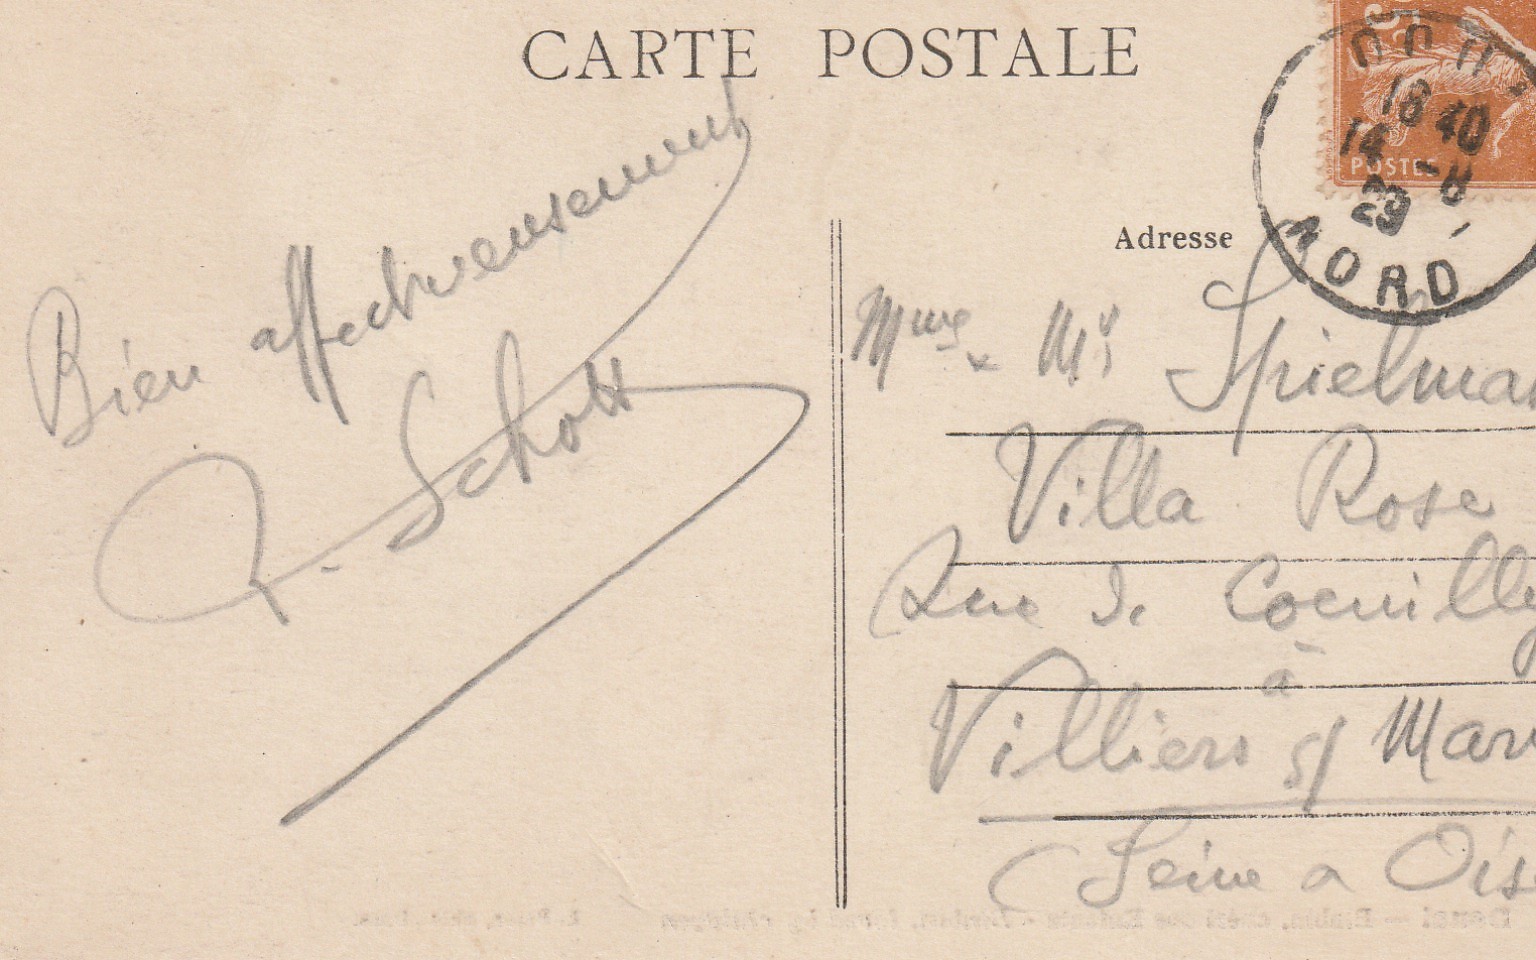 CARTE POSTALE
POSTES
18 40
14 -8
29
NORD
Adresse
Bien affectueusement
Schott
Mme & Mr Spielman
Villa Rose
Rue de Coeuilly
à
Villiers s/ Marn
(Seine & Oise